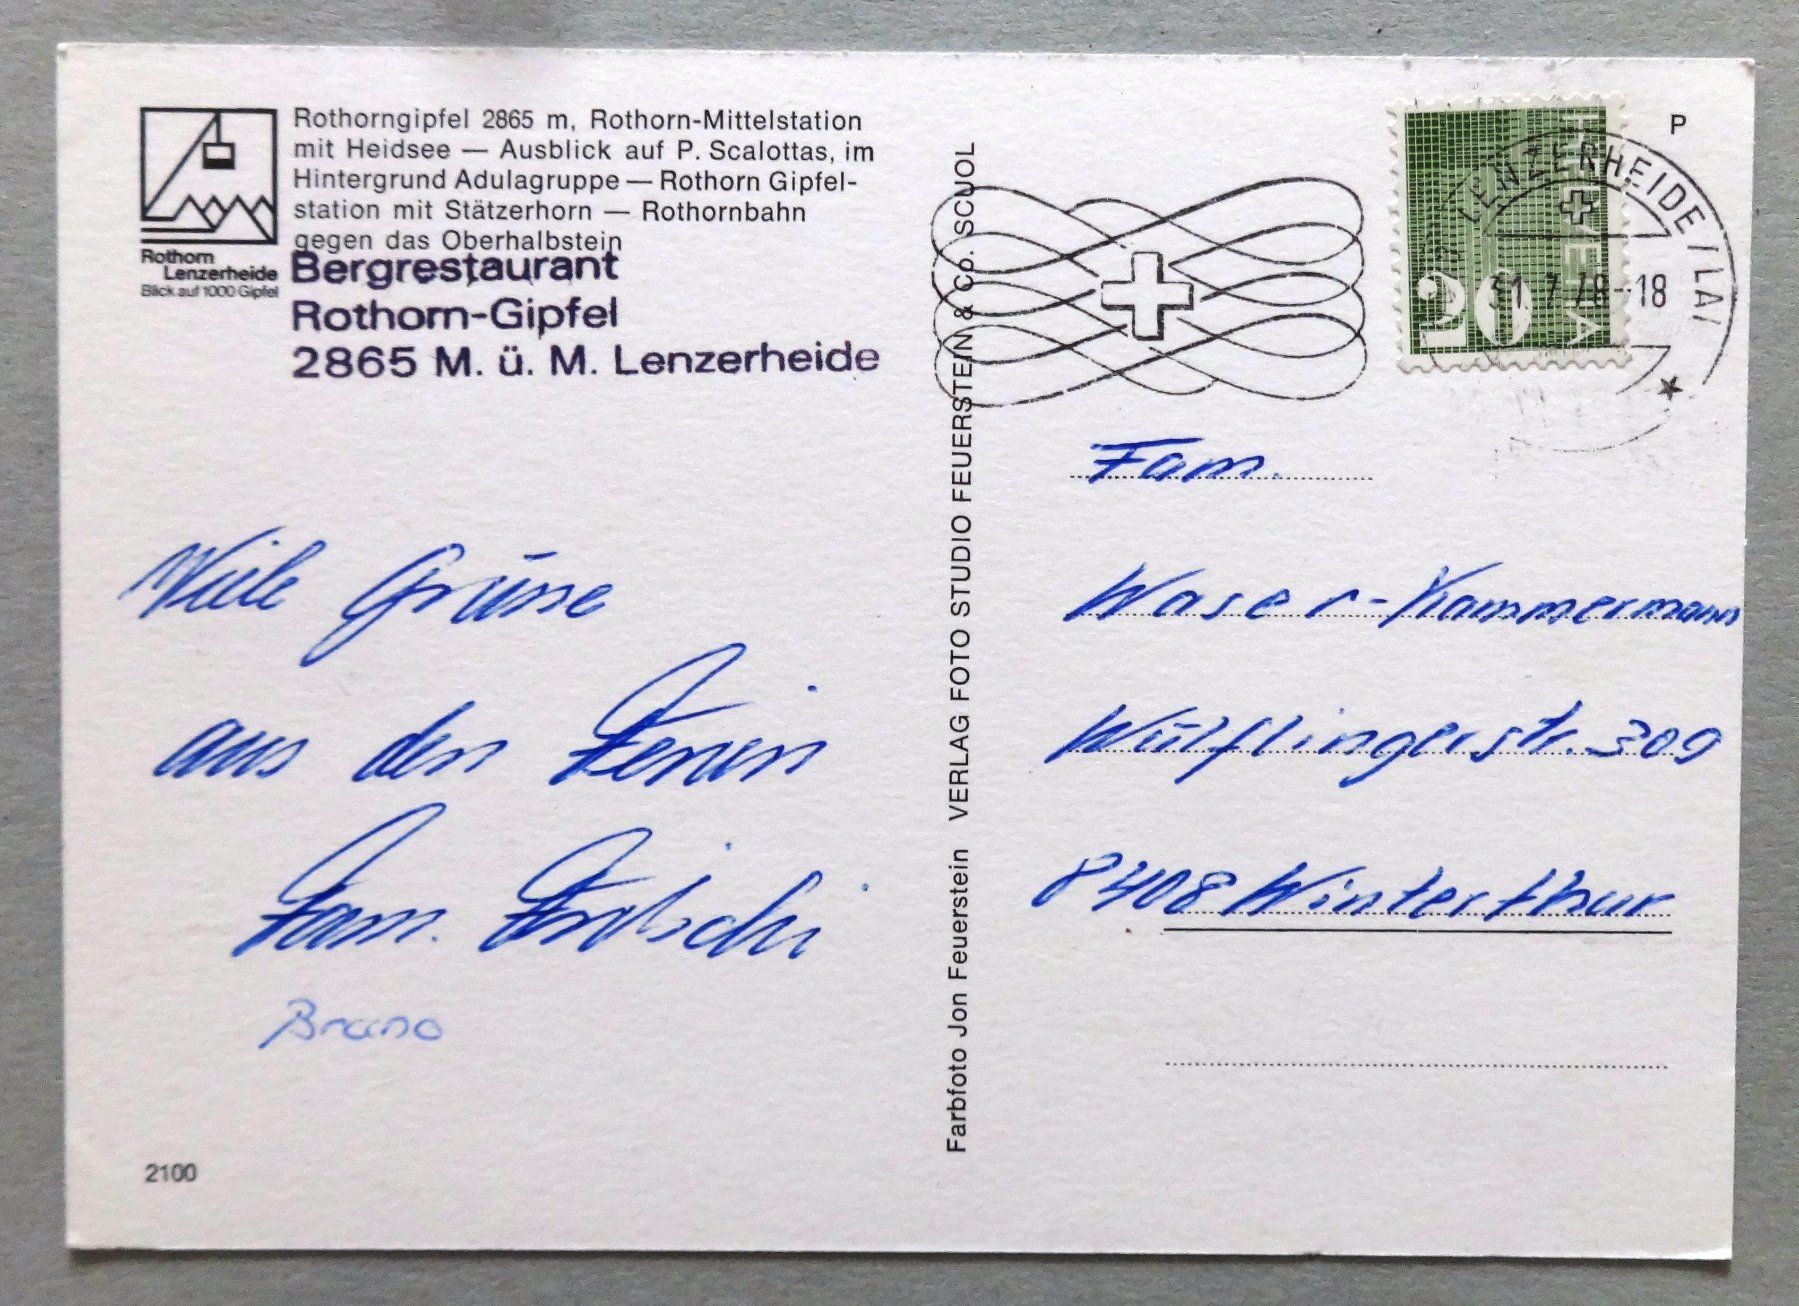 Rothorngipfel 2865 m, Rothorn-Mittelstation
mit Heidsee — Ausblick auf P. Scalottas, im
Hintergrund Adulagruppe — Rothorn Gipfel-
station mit Stätzerhorn — Rothornbahn
gegen das Oberhalbstein
Rothorn
Lenzerheide
Blick auf 1000 Gipfel
Bergrestaurant
Rothorn-Gipfel
2865 M. ü. M. Lenzerheide
Viele Grüsse
aus den Ferien
Fam.
Bruno
2100
Farbfoto Jon Feuerstein VERLAG FOTO STUDIO FEUERSTEIN & Co. SCUOL
P
HELVETIA
20
LENZERHEIDE / LAI
31.7.78-18
Fam.
Waser-Kammermann
Wülflingerstr. 309
8408 Winterthur